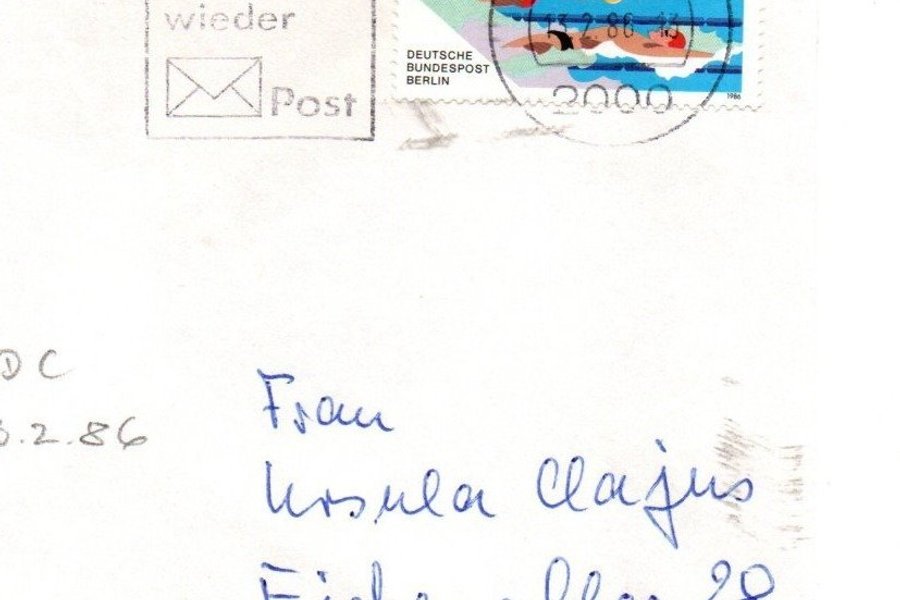 wieder
Post
DEUTSCHE
BUNDESPOST
BERLIN
13.2.86 13
1986
2000
DC
.2.86
Frau
Ursula Clajus
28